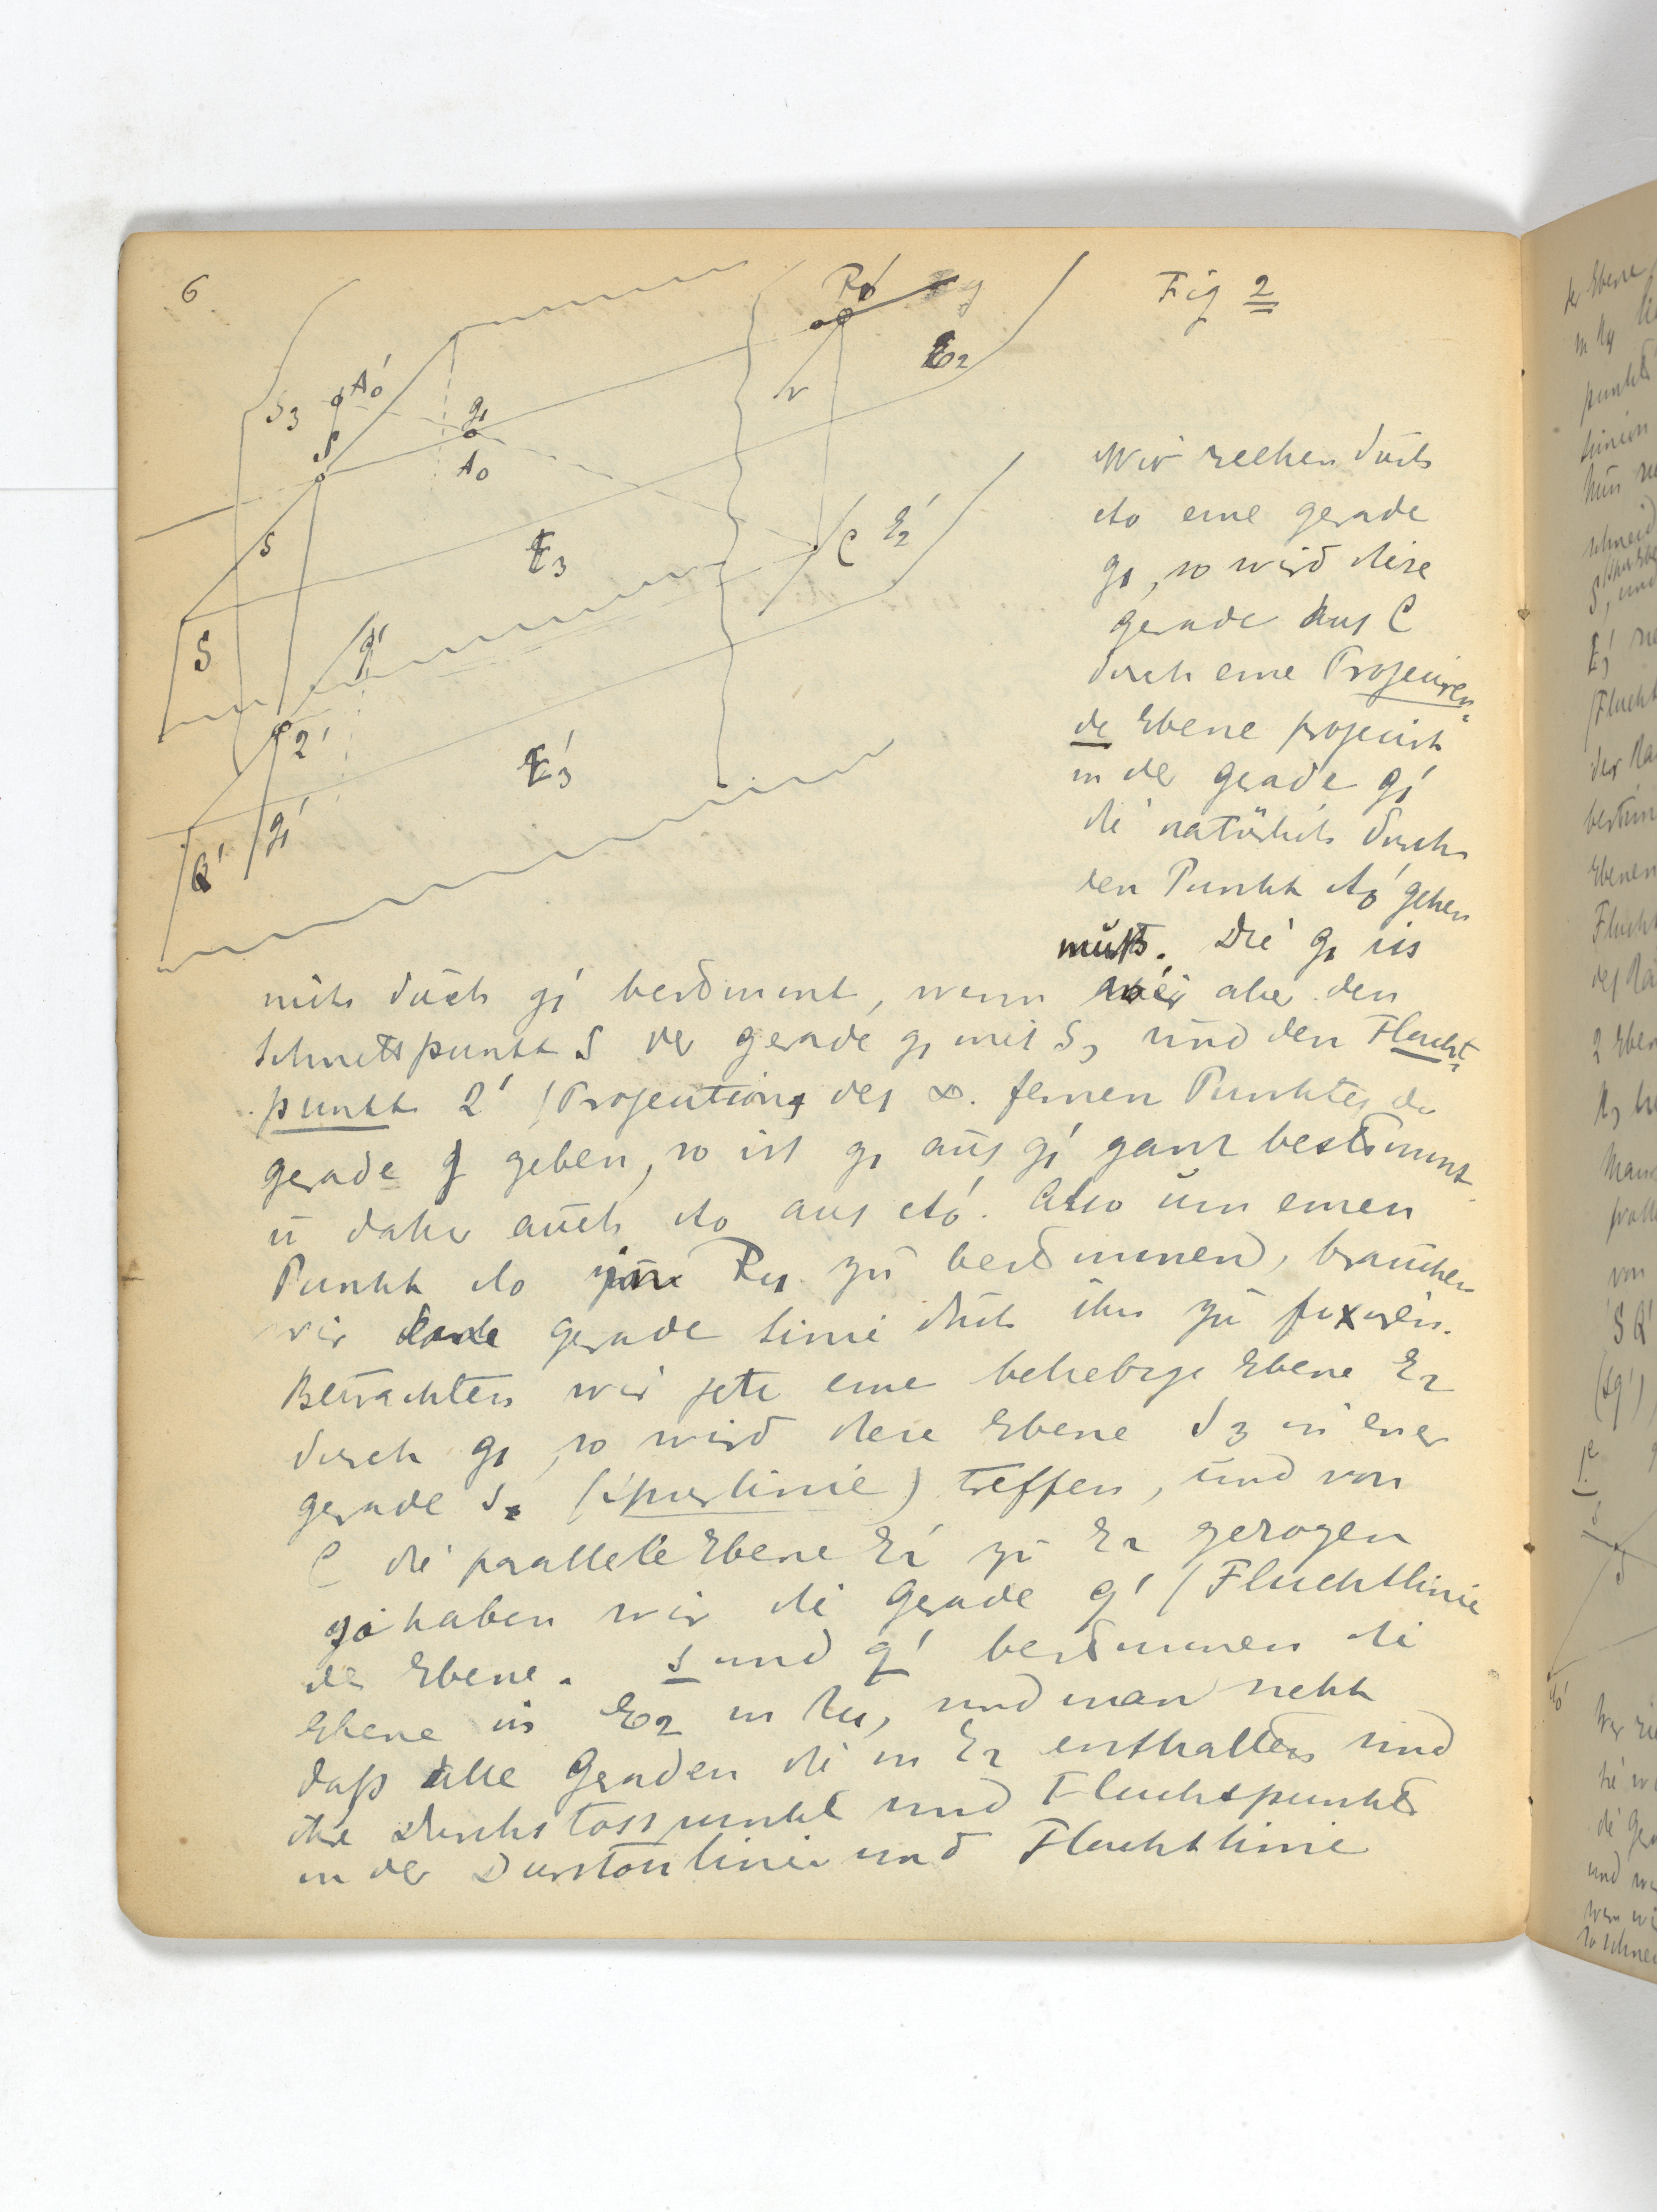 6
Fig 2
R1'
g
E2
S3
A0'
g1
S
A0
r
s
E3
C
E2'
S
q'
Q'
E3'
g1'
Q'
Wir ziehen durch
A0 eine gerade
g1, so wird diese
gerade aus C
durch eine Projeciren-
de Ebene projecirt
in der gerade g1'
die natürlich durch
den Punkt A0' gehen
muß. Die g1 ist
nicht durch g1' bestimmt, wenn wir aber den
Schnittspunkt S der gerade g1 mit S3 und den Flucht-
punkt Q' (Projection des ∞ fernen Punktes der
gerade g geben, so ist g1 aus g1' ganz bestimmt
u daher auch A0 aus A0'. Also um einen
Punkt A0 im zu bestimmen, brauchen
wir gerade Linie durch ihn zu fixiren.
Betrachten wir jetz eine beliebige Ebene E2
durch g1 so wird diese Ebene S3 in einer
gerade s (Spurlinie) treffen, und von
C die parallele Ebene E2' zu E2 gezogen
so haben wir die Gerade q' (Fluchtlinie
der Ebene. s und q' bestimmen die
Ebene E2 in und man sieht
daß alle Geraden die in E2 enthalten sind
ihre Durchstosspunkte und Fluchtspunkte
in der Durstosslinie und Fluchtlinie